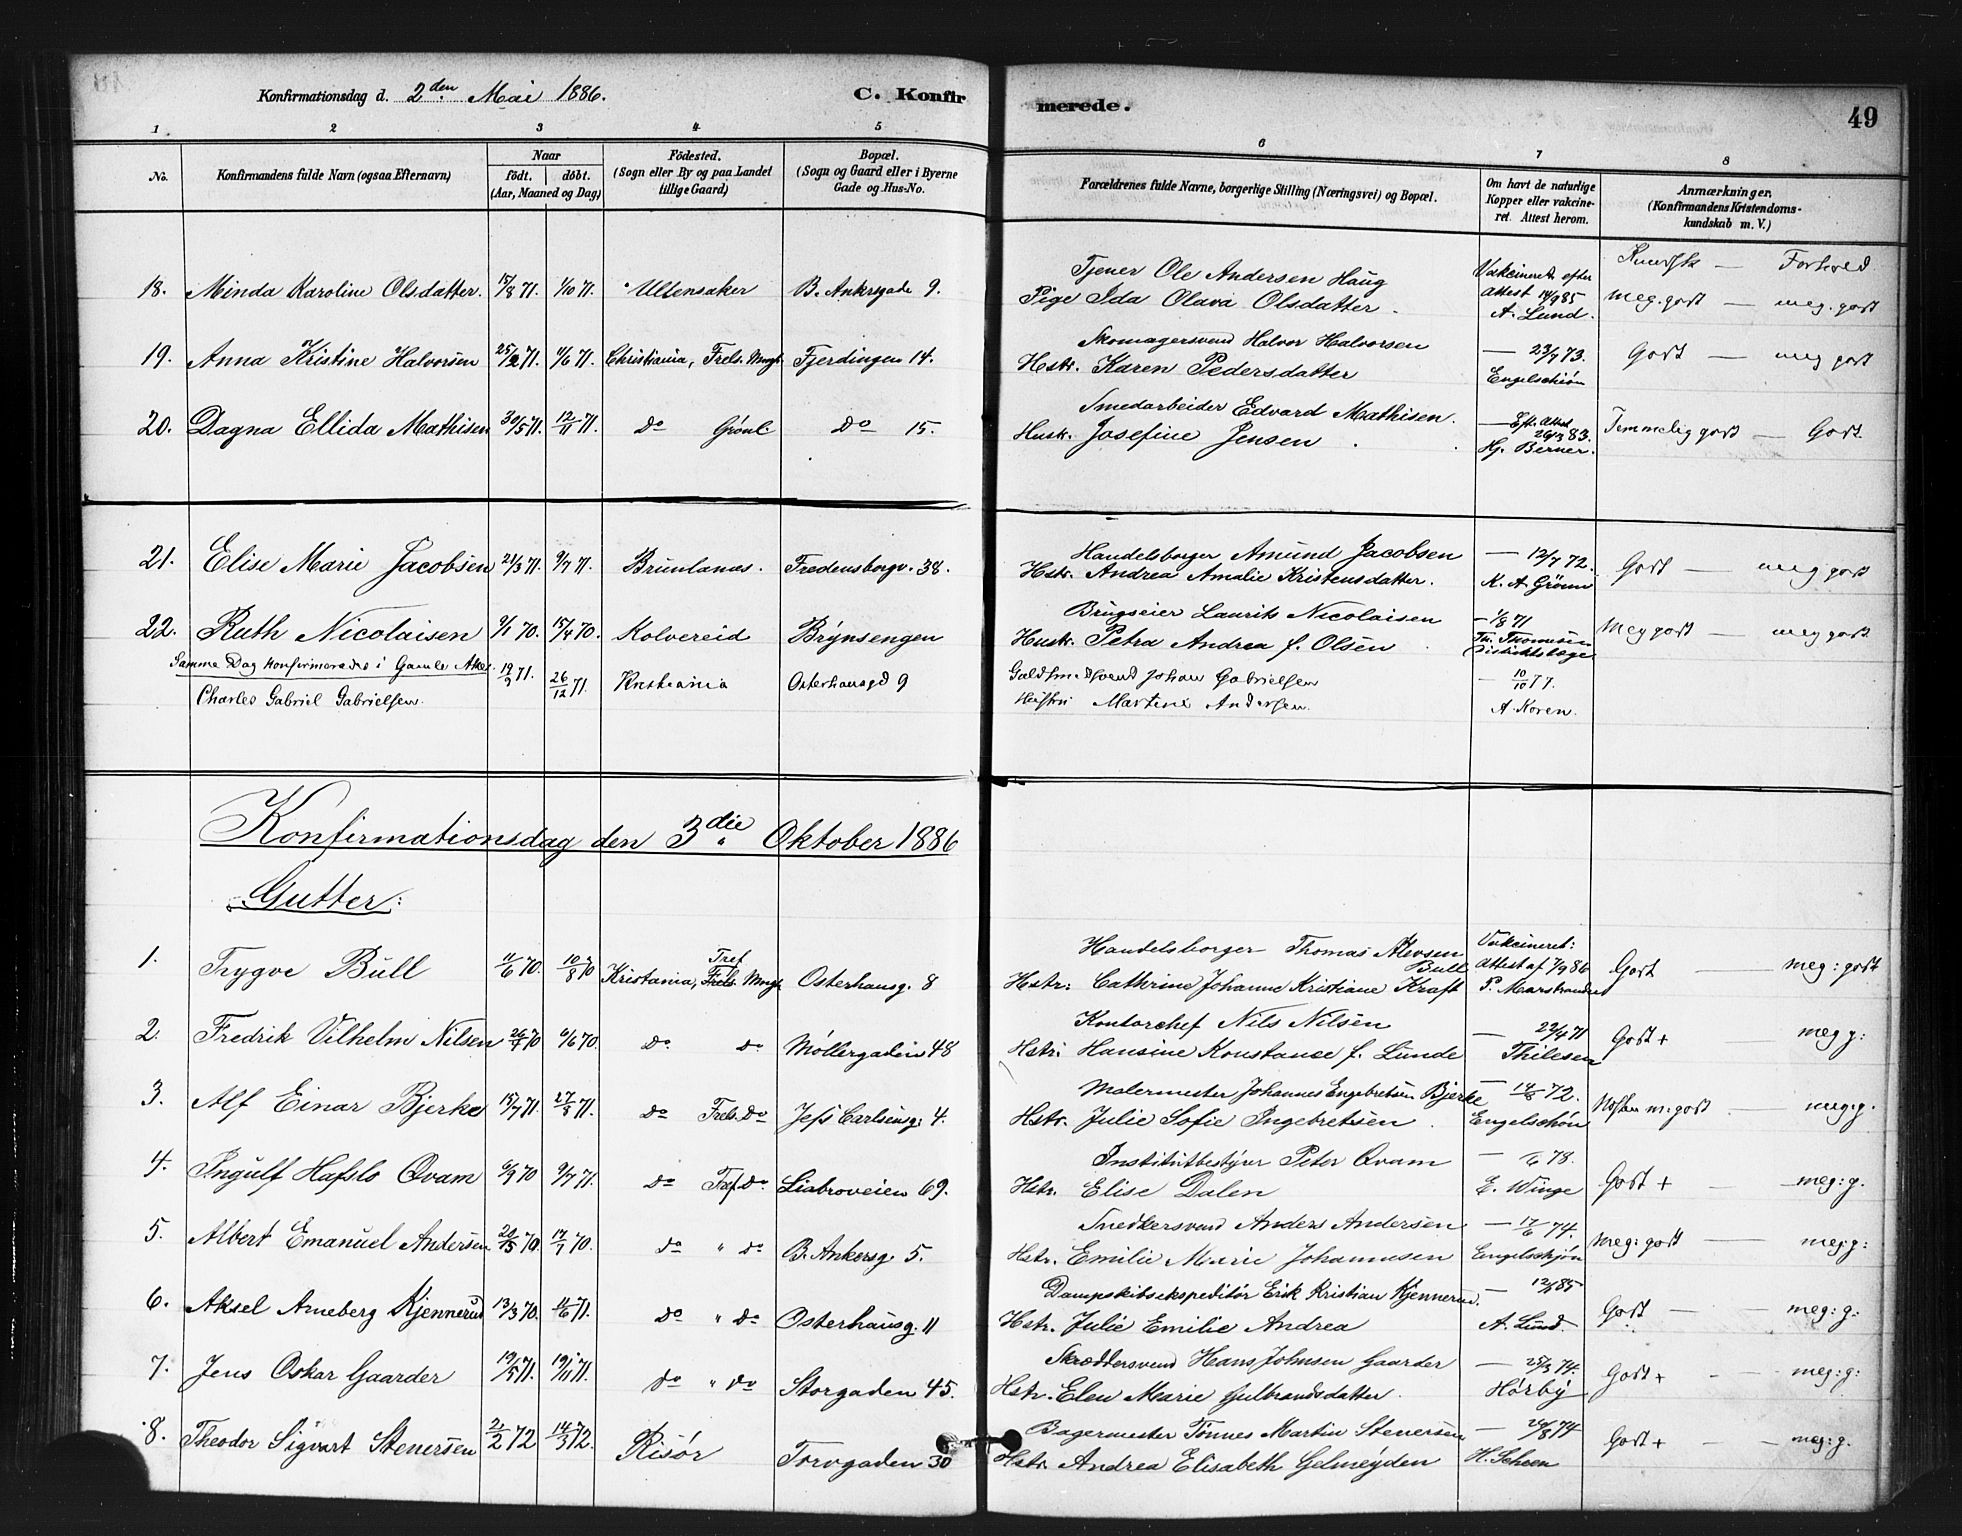 Konfirmationsdag d. 2den Mai 1886.
C. Konfirmerede.
49
1 2 3 4 5 6 7 8
No.
Konfirmandens fulde Navn (ogsaa Efternavn)
Naar
födt. döbt.
(Aar, Maaned og Dag)
Födested.
(Sogn eller By og paa Landet
tillige Gaard)
Bopæl.
(Sogn og Gaard eller i Byerne
Gade og Hus-No.
Forældrenes fulde Navne, borgerlige Stilling (Næringsvei) og Bopæl.
Om havt de naturlige
Kopper eller vakcine-
ret. Attest herom.
Anmærkninger.
(Konfirmandens Kristendoms-
kundskab m. V.)
Kundsk — Forhold
Tjener Ole Andersen Haug
18. Minda Karoline Olsdatter. 15/8 71. 1/10 71. Ullensaker B. Ankersgade 9. Pige Ida Olava Olsdatter. Vakcineret efter attest 14/9 85 A. Lund. meg. godt — meg. godt
Skomagersvend Halvor Halvorsen
19. Anna Kristine Halvorsen 25/2 71. 11/6 71. Christiania, Frels. Mngh. Fjerdingen 14. Hstr. Karen Pedersdatter — 23/7 73. Engelschiøn Godt — meg godt
Smedarbeider Edvard Mathisen.
20. Dagna Ellida Mathisen 30/5 71. 12/11 71. Do Grønl. Do 15. Husk. Josefine Jensen — Eft. Attest 26/3 83. Hj. Berner. Temmelig godt — Godt
Handelsborger Amund Jacobsen
21. Elise Marie Jacobsen 21/3 71. 9/7 71. Brunlanæs. Fredensborgv. 38. Hstr. Andrea Amalie Kristensdatter. — 12/7 72. K. A. Grønn Godt — meg godt
Brugseier Laurits Nicolaisen
22. Ruth Nicolaisen 9/1 70. 15/4 70. Kolvereid Brynsengen Husk. Petra Andrea f. Olsen — 1/8 71 Th. Thomesen Distriktslæge Meg godt — meg godt
Samme Dag konfirmeredes i Gamle Aker
Charles Gabriel Gabrielsen. 12/9 71. 26/12 71. Kristiania Osterhausgd 9 Guldsmedsvend Johan Gabrielsen
Hustru Martine Andersen. — 10/10 77. A. Koren.
Konfirmationsdag den 3die Oktober 1886
Gutter:
Handelsborger Thomas Alevsen Bull
1. Trygve Bull 11/6 70. 10/8 70 Kristiania, Tref Mngh. Osterhausg. 8 Hstr: Cathrine Johanne Kristiane Kraft Vakcineret: Attest af 7/9 86 P. Marstrander Godt — meg: godt
Kontorchef Nils Nilsen
2. Fredrik Vilhelm Nilsen 26/1 70 6/6 70. Do Do Møllergaden 48 Hstr: Hansine Konstance f. Lunde — 29/4 71 Thilesen Godt + meg g:
Malermester Johannes Engebretsen Bjerke
3. Alf Einar Bjerke 15/7 71. 27/8 71. Do Frels. Do Jess Carlsensg: 4. Hstr. Julie Sofie Ingebretsen. — 14/8 72. Engelschøn Næsten m: godt — meg: g.
Institutbestyrer Peter Qvam
4. Ingulf Hafslo Qvam 6/9 70 9/7 71. Do Tref Do Liabroveien 69. Hstr. Elise Dalen — 78. E. Winge Godt + — meg: g.
Snedkersvend Anders Andersen
5. Albert Emanuel Andersen 20/5 70. 17/7 70. Do " Do B. Ankersg 5. Hstr. Emilie Marie Johannesen — 17/6 74. Engelschjøn meg: godt — meg: g:
Dampskibsekspeditör Erik Kristian Kjennerud.
6. Aksel Arneberg Kjennerud 13/3 70. 11/6 71. Do " Do Osterhausg. 11 Hstr. Julie Emilie Andrea — 12/1 85 A. Lund. Godt — meg: g:
Skræddersvend Hans Johnsen Gaarder
7. Jens Oskar Gaarder 19/5 71. 19/11 71. Do " Do Storgaden 45. Hstr. Elen Marie Gulbrandsdatter. — 25/3 74. Hørbÿ Godt + — meg: g:
Bagermester Tönnes Martin Stenersen
8. Theodor Sigvart Stenersen 21/2 72 14/3 72. Risör Torvgaden 30 Hstr. Andrea Elisabeth Gelmeyden — 24/8 74 H. Scheen Godt + — meg: g.